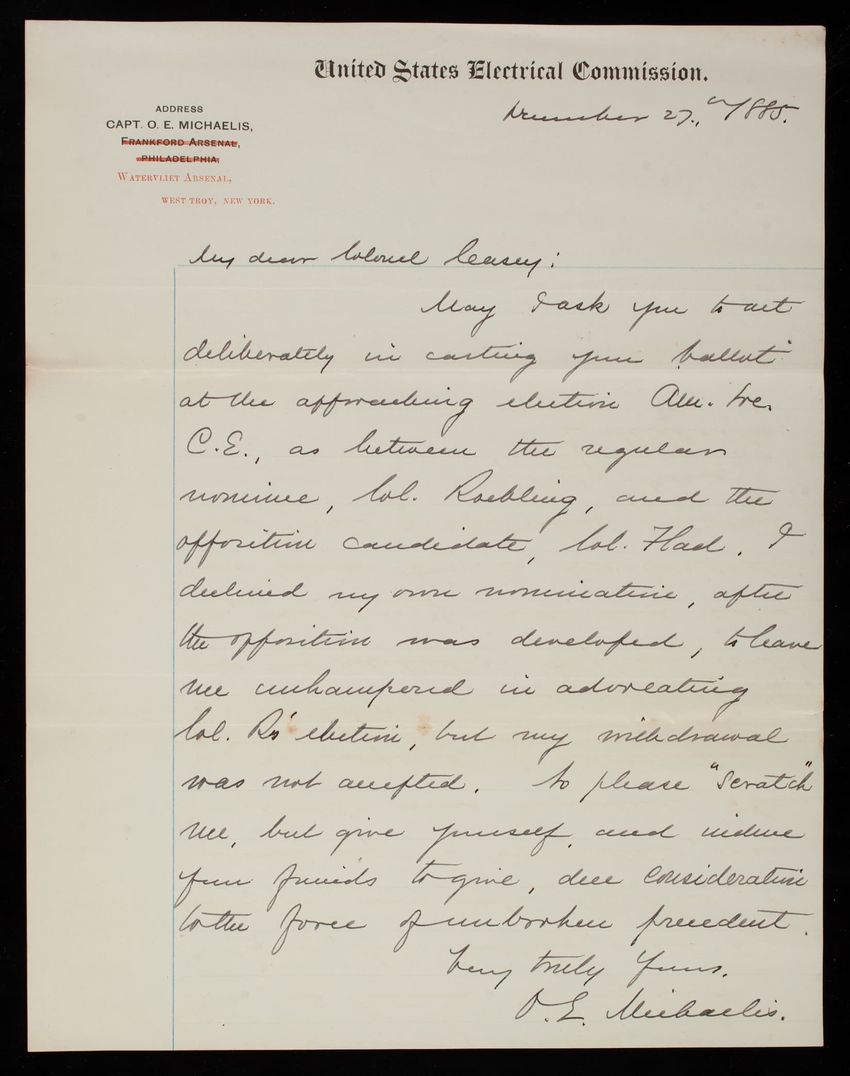 United States Electrical Commission.
ADDRESS
CAPT. O. E. MICHAELIS,
FRANKFORD ARSENAL,
PHILADELPHIA
WATERVLIET ARSENAL,
WEST TROY, NEW YORK.
December 27., 1885.
My dear Colonel Casey:
May I ask you to act
deliberately in casting your ballot
at the approaching election Am. Soc.
C.E., as between the regular
nominee, Col. Roebling, and the
opposition candidate, Col. Flad. I
declined my own nomination, after
the opposition was developed, to leave
me unhampered in advocating
Col. R's election, but my withdrawal
was not accepted. So please "scratch"
me, but give yourself, and induce
your friends to give, due consideration
to the force of unbroken precedent.
Very truly Yours,
O. E. Michaelis.